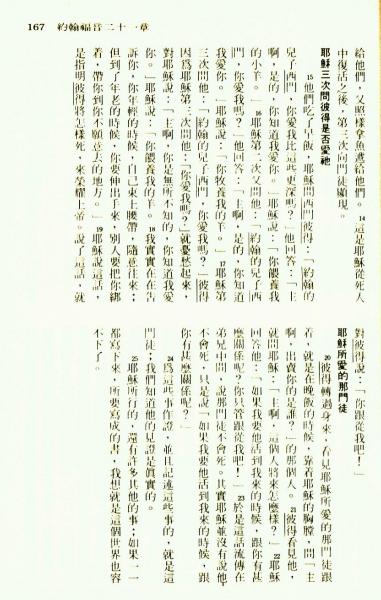 167 約翰福音二十一章
給他們，又照樣拿魚遞給他們。14 這是耶穌從死人
中復活之後，第三次向門徒顯現。
耶穌三次問彼得是否愛祂
15 他們吃了早飯，耶穌問西門彼得：「約翰的
兒子西門，你愛我比這些更深嗎？」他回答：「主
啊，是的，你知道我愛你。」耶穌說：「你餵養我
的小羊。」16 耶穌第二次又問他：「約翰的兒子西
門，你愛我嗎？」他回答：「主啊，是的，你知道
我愛你。」耶穌說：「你牧養我的羊。」17 耶穌第
三次問他：「約翰的兒子西門，你愛我嗎？」彼得
因爲耶穌第三次問他：「你愛我嗎？」就憂愁起來，
對耶穌說：「主啊，你是無所不知的，你知道我愛
你。」耶穌說：「你餵養我的羊。18 我實實在在告
訴你，你年輕的時候，自己束上腰帶，隨意往來；
但到了年老的時候，你要伸出手來，別人要把你綁
着，帶你到你不願意去的地方。」19 耶穌說這話，
是指明彼得將怎樣死，來榮耀上帝。說了這話，就
對彼得說：「你跟從我吧！」
耶穌所愛的那門徒
20 彼得轉過身來，看見耶穌所愛的那門徒跟
着，就是在晚飯的時候，靠着耶穌的胸膛，問「主
啊，出賣你的是誰？」的那個人。21 彼得看見他，
就問耶穌：「主啊，這個人將來怎麼樣？」22 耶穌
回答他：「如果我要他活到我來的時候，跟你有甚
麼關係呢？你只管跟從我吧！」23 於是這話流傳在
弟兄中間，說那門徒不會死。其實耶穌並沒有說他
不會死，只是說「如果我要他活到我來的時候，跟
你有甚麼關係呢？」
24 爲這些事作證，並且記述這些事的，就是這
門徒；我們知道他的見證是眞實的。
25 耶穌所行的，還有許多其他的事；如果一一
都寫下來，所要寫成的書，我想就是這個世界也容
不下了。